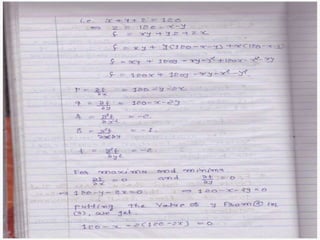 i.e. x + y + z = 120
⇒ z = 120 - x - y
f = xy + yz + zx
f = xy + y(120-x-y) + x(120-x-y)
f = xy + 120y - xy - y² + 120x - x² - xy
f = 120x + 120y - xy - x² - y²
p = ∂f/∂x = 120 - 2x - y
q = ∂f/∂y = 120 - x - 2y
= ∂²f/∂x² = -2
= ∂²f/∂x∂y = -1
t = ∂²f/∂y² = -2
For maxima and minima
∂f/∂x = 0 and ∂f/∂y = 0
⇒ 120 - y - 2x = 0 ⇒ 120 - x - 2y = 0
putting the value of y from in
we get
120 - x - 2(120 - 2x) = 0